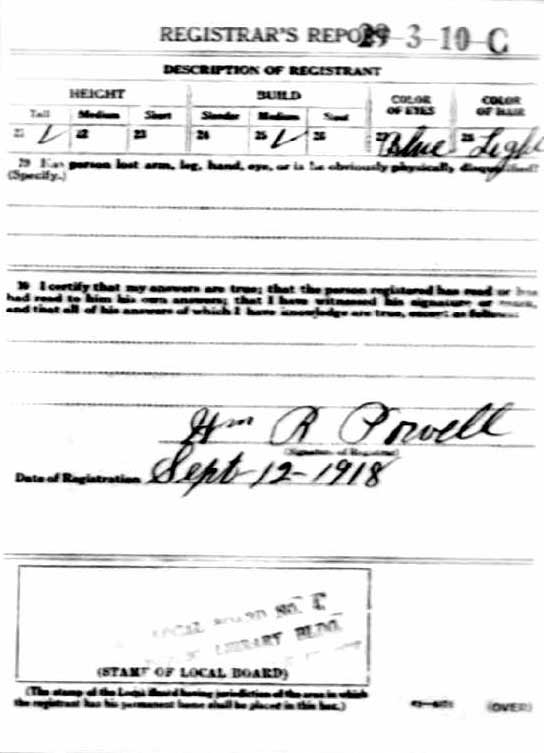 REGISTRAR'S REPORT 29-3-10-C
DESCRIPTION OF REGISTRANT
HEIGHT BUILD COLOR OF EYES COLOR OF HAIR
Tall Medium Short Slender Medium Stout
21 ✓ 22 23 24 25 ✓ 26 27 Blue 28 Light
29 Has person lost arm, leg, hand, eye, or is he obviously physically disqualified?
(Specify.)
30 I certify that my answers are true; that the person registered has read or has
had read to him his own answers; that I have witnessed his signature or mark,
and that all of his answers of which I have knowledge are true, except as follows:
Wm R Powell
(Signature of Registrar)
Date of Registration Sept 12-1918
LOCAL BOARD NO.
LIBRARY BLDG.
(STAMP OF LOCAL BOARD)
(The stamp of the Local Board having jurisdiction of the area in which
the registrant has his permanent home shall be placed in this box.)
(OVER)